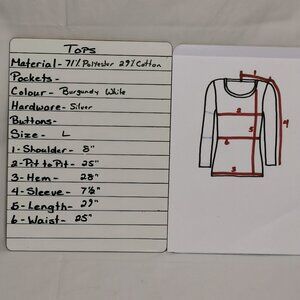 Tops
Material - 71% Polyester 29% Cotton
Pockets -
Colour - Burgundy White
Hardware - Silver
Buttons -
Size - L
1 - Shoulder - 8"
2 - Pit to Pit - 25"
3 - Hem - 28"
4 - Sleeve - 7½"
5 - Length - 29"
6 - Waist - 25"
1
2
5
6
3
4